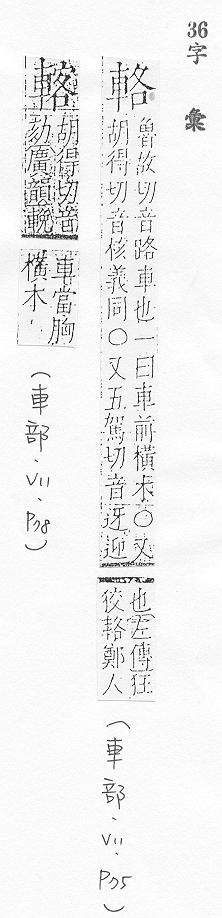 36字 彙
輅
魯故切音路車也一曰車前橫木○又
胡得切音核義同○又五駕切音迓迎
也左傳狂
狡輅鄭人
(車部.VII.P75)
胡得切音
劾廣韻輓
車當胸
橫木
(車部.VII.P78)